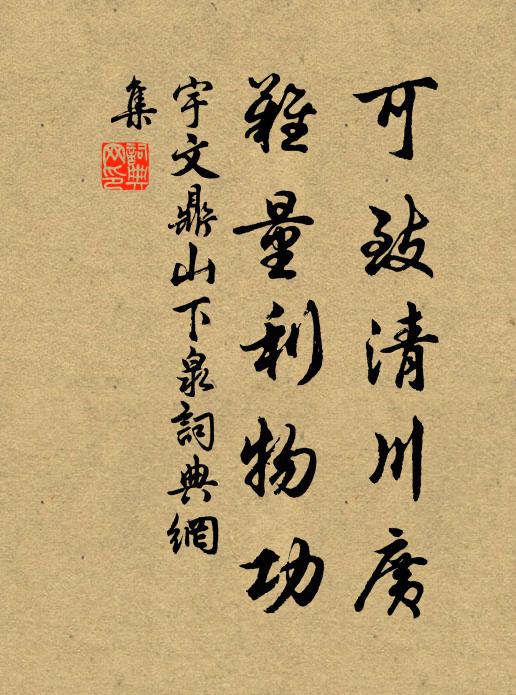 可致清川廣
難量利物功
宇文鼎山下泉詞典網
集
詞典網印